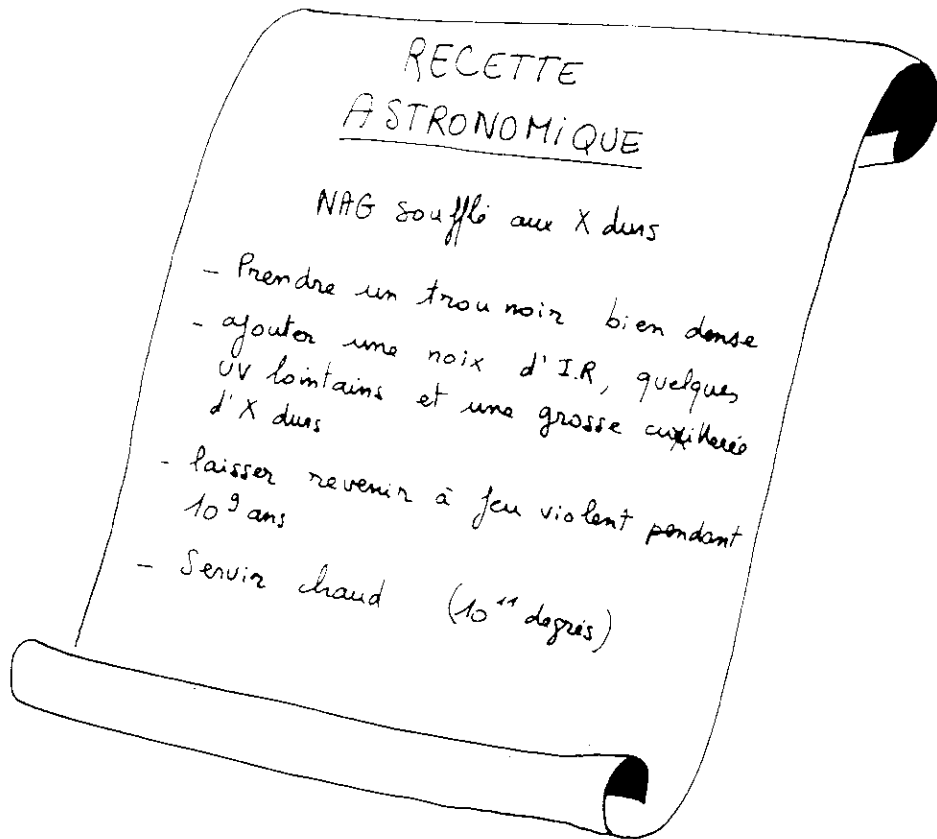 RECETTE
ASTRONOMIQUE
NAG soufflé aux X durs
- Prendre un trou noir bien dense
- ajouter une noix d'I.R, quelques
UV lointains et une grosse cuillerée
d'X durs
- laisser revenir à feu violent pendant
10⁹ ans
- Servir chaud (10¹¹ degrés)